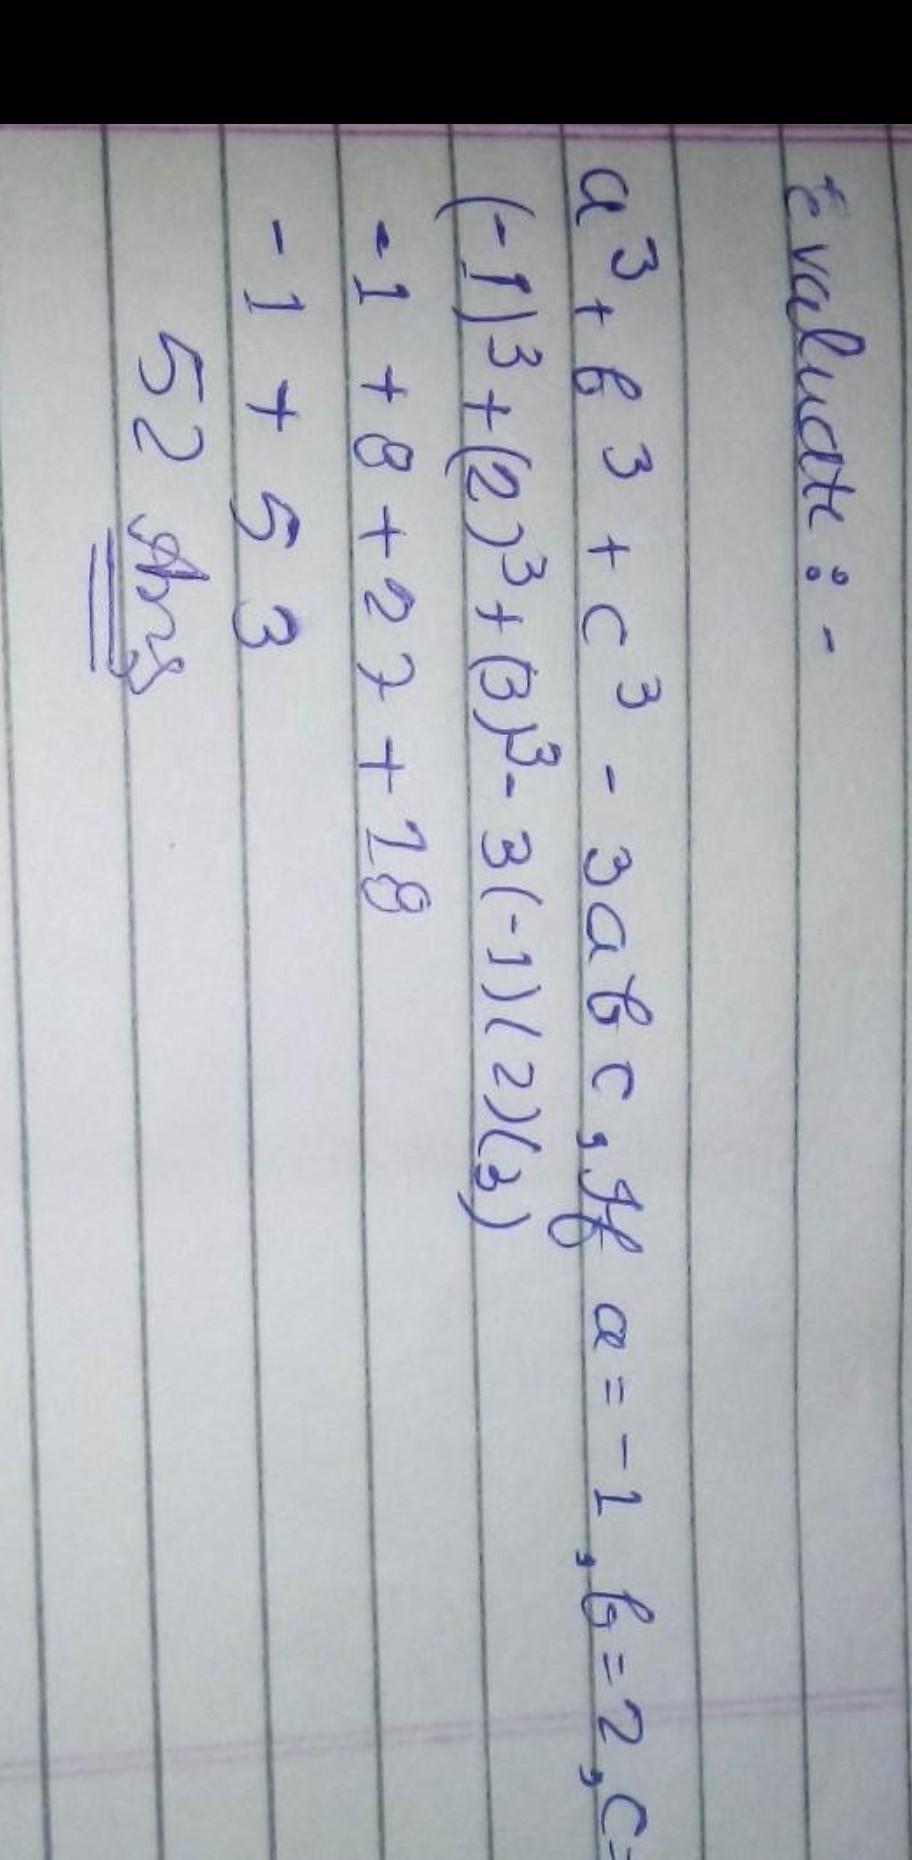 Evaluate :-
a³ + b³ + c³ - 3abc, If a = -1, b = 2, c=
(-1)³ + (2)³ + (3)³ - 3(-1)(2)(3)
-1 + 8 + 27 + 18
-1 + 53
52 Ans